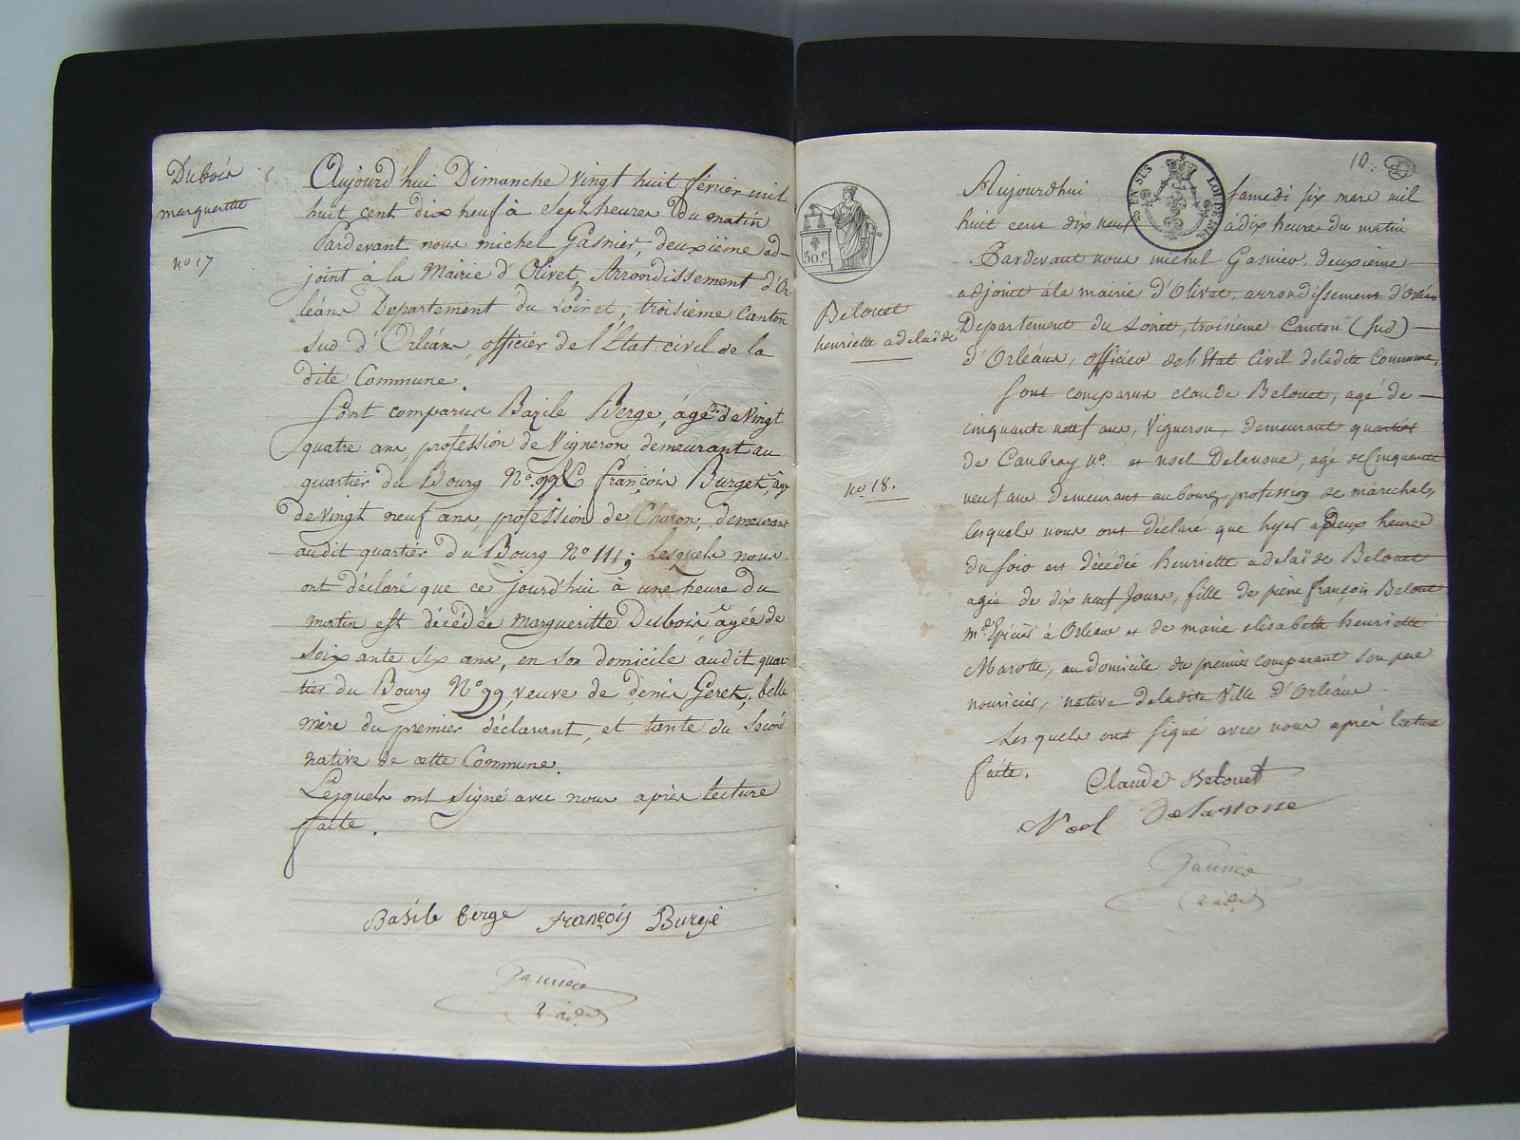 Dubois
margueritte
no 17
Aujourd'hui Dimanche vingt huit février mil
huit cent dix neuf à Sept heures du matin
Pardevant nous michel Gasnier, deuxième ad-
joint à la Mairie d'Olivet, Arrondissement d'Or
léans Departement du Loiret, troisième Canton
sud d'Orléans, officier de l'État civil de la
dite Commune.
Sont comparus Bazile Berge, âgé de vingt
quatre ans profession de Vigneron demeurant au
quartier du Bourg No. 99 & françois Burget, âgé
de vingt neuf ans, profession de Charon, demeurant
audit quartier du Bourg No 111, Lesquels nous
ont déclaré que ce jourd'hui à une heure du
matin est décédée margueritte Dubois âgée de
Soixante Six ans, en son domicile audit quar
tier du Bourg No 99, veuve de denis Geret, belle
mère du premier déclarant, et tante du Second
native de cette Commune.
Lesquels ont signé avec nous après lecture
faite.
Basile berge françois Burgé
Gasnier
2e adj
10.
EN SUS
LOI DE 1816
50 c
Belouet
henriette adelaïde
no 18.
Aujourdhui Samedi six mars mil
huit cent dix neuf à dix heures du matin
Pardevant nous michel Gasnier deuxieme
adjoint à la mairie d'Olivet, arrondissement d'Orléans
Departement du Loiret, troisieme Canton (sud)
d'Orléans, officier de l'Etat Civil deladite Commune,
Sont comparus claude Belouet, agé de
cinquante neuf ans, Vigneron, demeurant quartier
de Caubray no. et noel Delanoue, agé de Cinquante
neuf ans demeurant au bourg, profession de marechal,
lesquels nous ont déclaré que hyer a Deux heures
du soir est décédée henriette adelaïde Belouet
agée de dix neuf Jours, fille de pierre françois Belouet
md Epicier à Orléans et de marie elisabeth henriette
Marotte, au domicile du premier comparant son pere
nouricier, native deladite Ville d'Orléans.
Lesquels ont signé avec nous après lecture
faite.
Claude Belouet
Noel Delanoue
Gasnier
2e adj